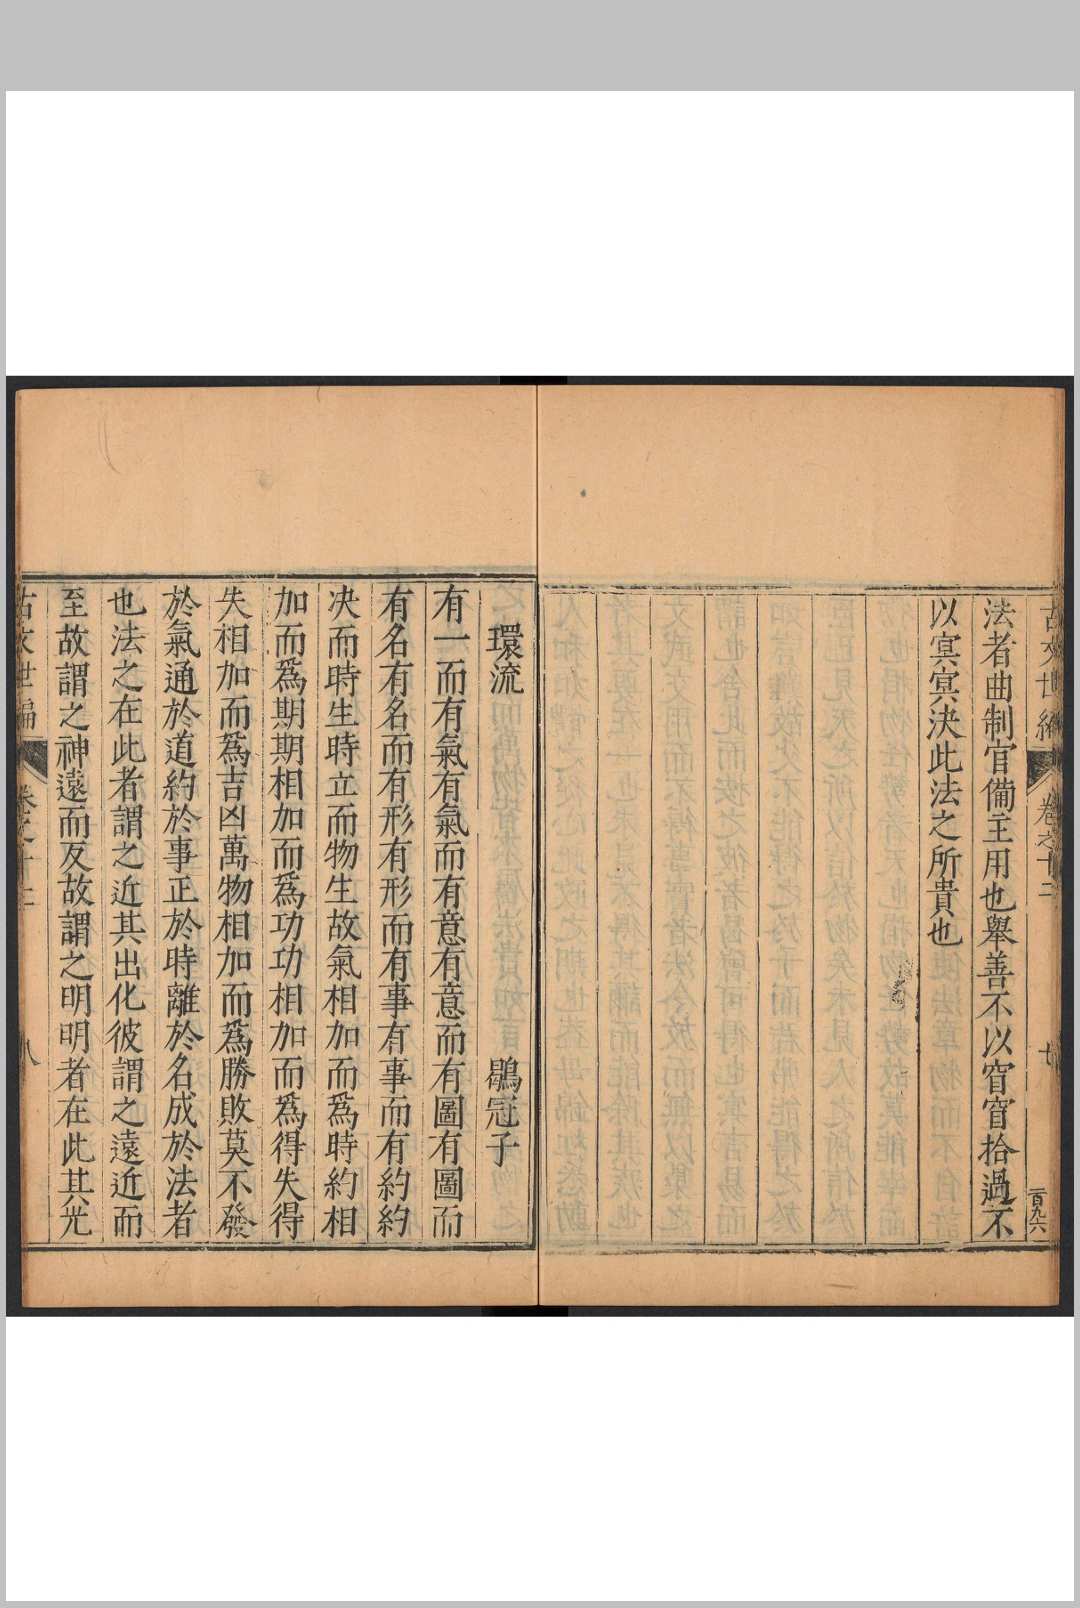 古文世編 卷之十二 七 二百九六
法者曲制官備主用也舉善不以窅窅拾過不
以冥冥決此法之所貴也
環流 鶡冠子
有一而有氣有氣而有意有意而有圖有圖而
有名有名而有形有形而有事有事而有約約
决而時生時立而物生故氣相加而爲時約相
加而爲期期相加而爲功功相加而爲得失得
失相加而爲吉凶萬物相加而爲勝敗莫不發
於氣通於道約於事正於時離於名成於法者
也法之在此者謂之近其出化彼謂之遠近而
至故謂之神遠而反故謂之明明者在此其光
古文世編 卷之十二 八